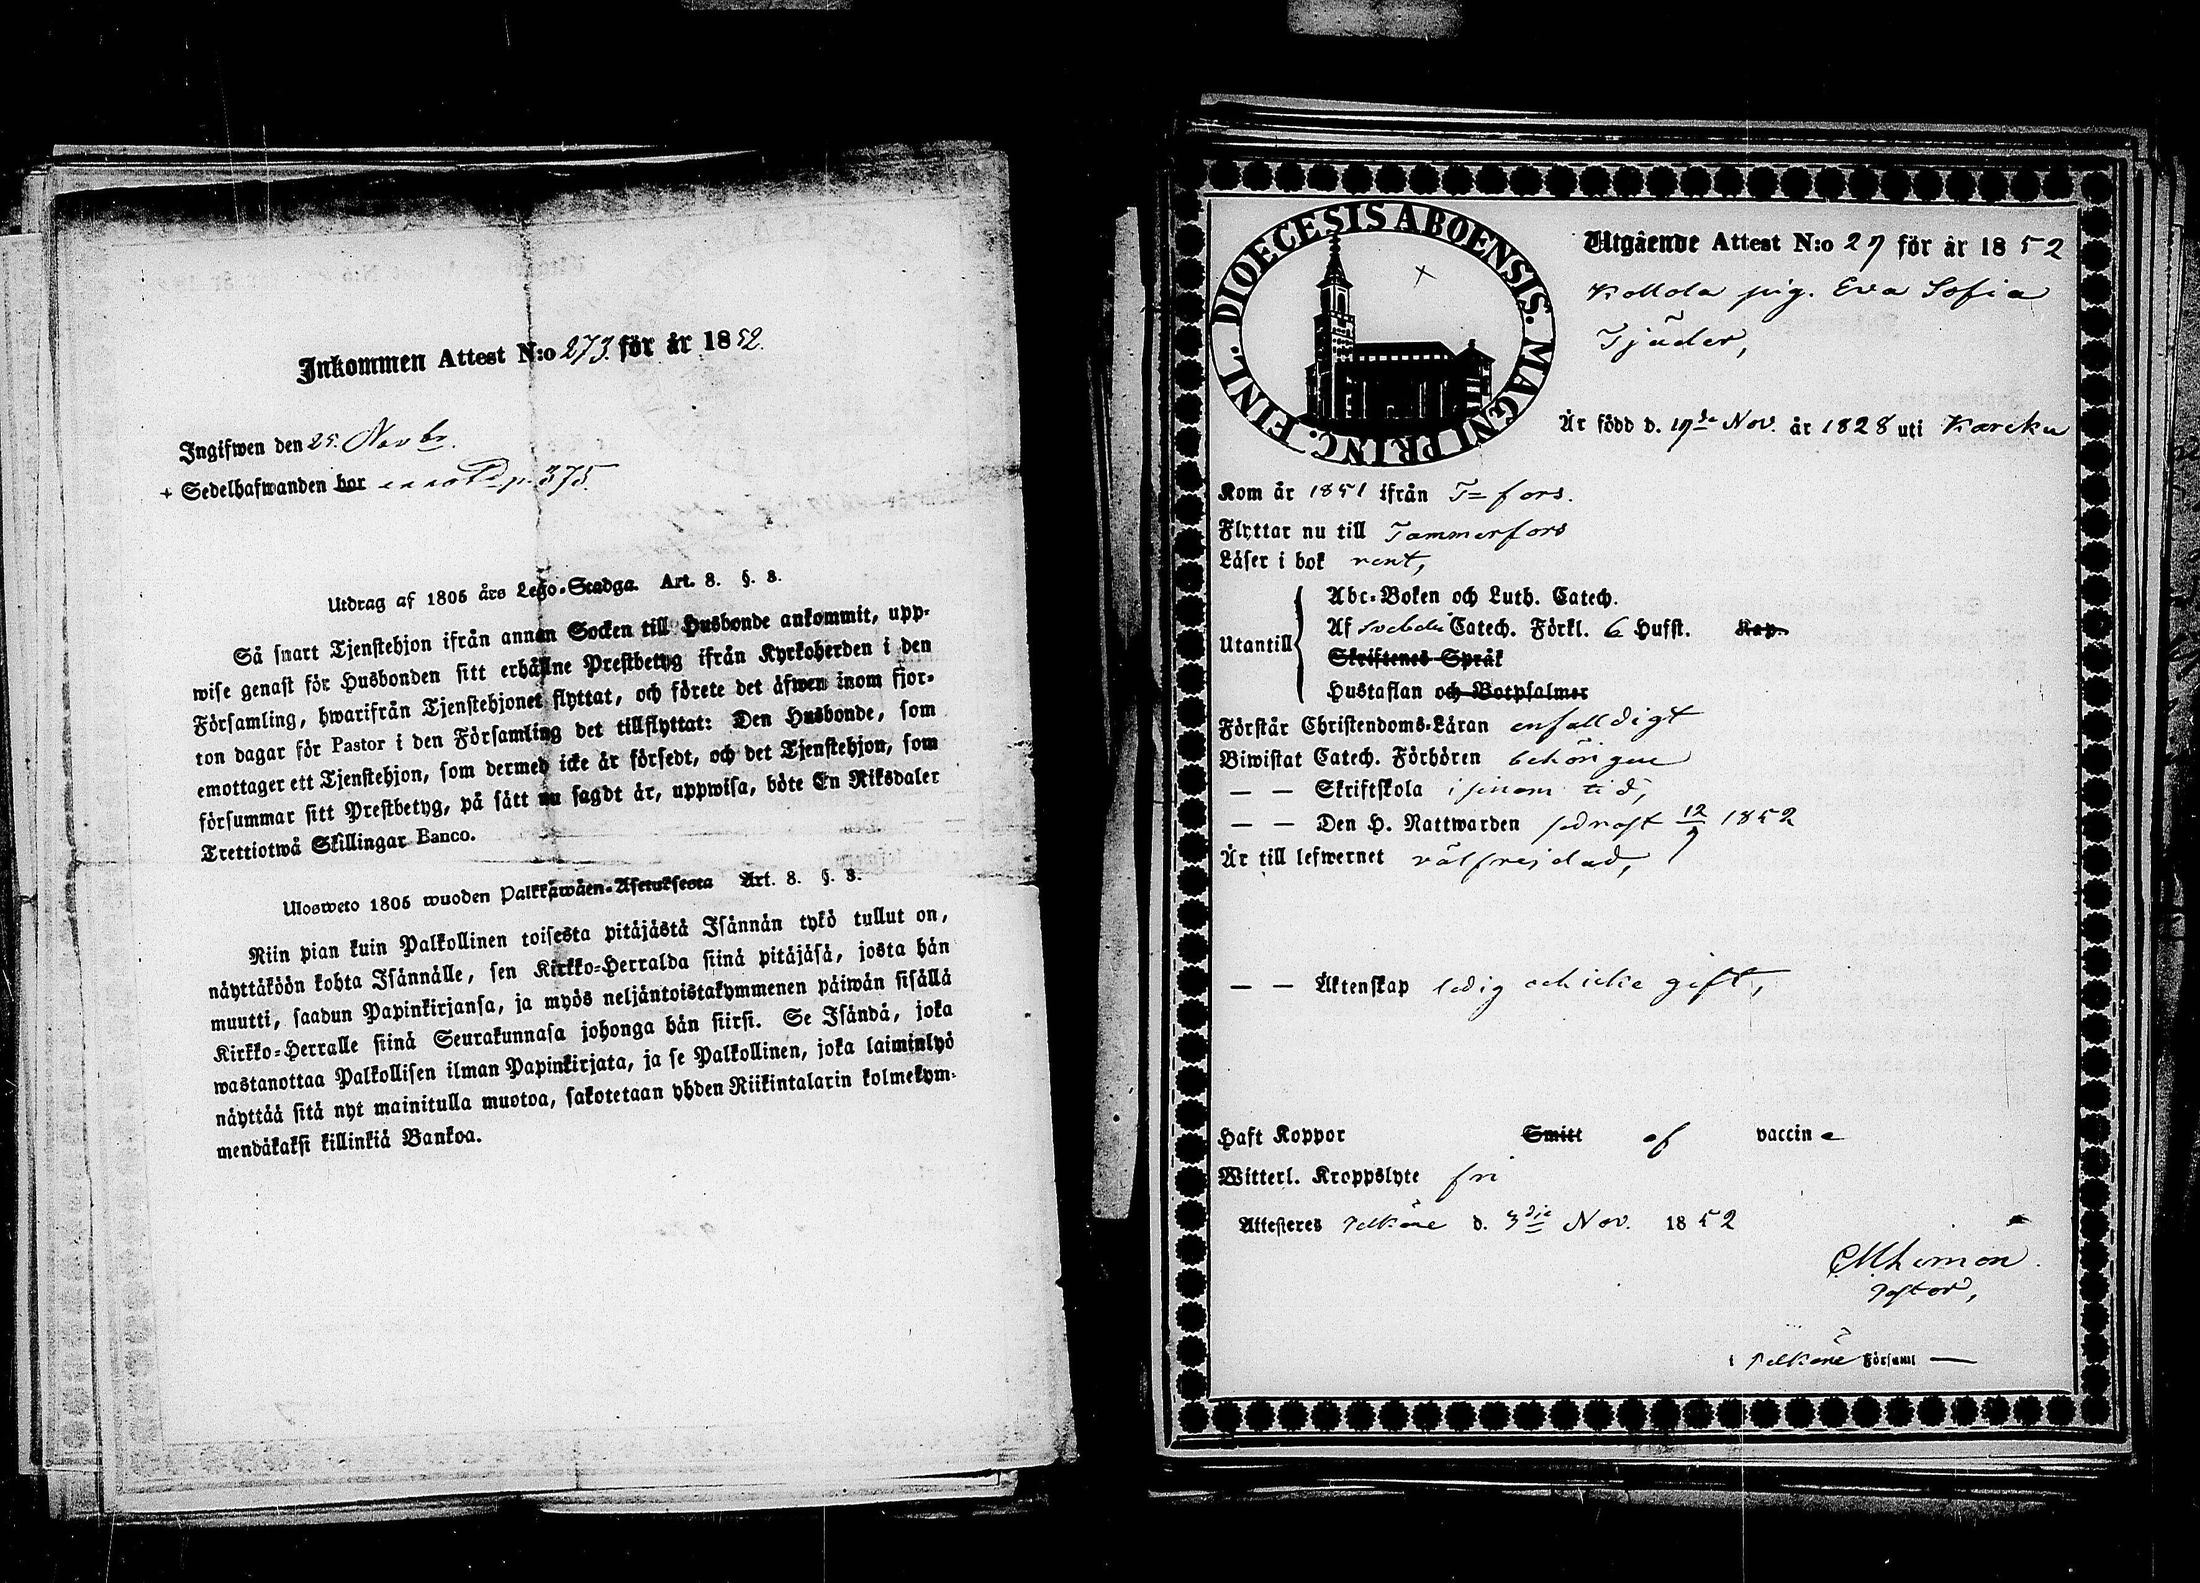 Inkommen Attest N:o 273. för år 1852.
Ingifwen den 25. Novbr.
+ Sedelhafwanden bor p. 375.
Utdrag af 1805 års Lego-Stadga. Art. 8. §. 8.
Så snart Tjenstehjon ifrån annan Socken till Husbonde ankommit, upp-
wise genast för Husbonden sitt erhållne Prestbetyg ifrån Kyrkoherden i den
Församling, hwarifrån Tjenstehjonet flyttat, och förete det äfwen inom fjor-
ton dagar för Pastor i den Församling det tillflyttat: Den Husbonde, som
emottager ett Tjenstehjon, som dermed icke är försedt, och det Tjenstehjon, som
försummar sitt Prestbetyg, på sätt nu sagdt är, uppwisa, böte En Riksdaler
Trettiotwå Skillingar Banco.
Ulosweto 1805 wuoden Palkkawäen-Asetuksesta Art. 8. §. 8.
Niin pian kuin Palkollinen toisesta pitäjästä Isännän tykö tullut on,
näyttäköön kohta Isännälle, sen Kirkko-Herralda siinä pitäjäsä, josta hän
muutti, saadun Papinkirjansa, ja myös neljäntoistakymmenen päiwän sisällä
Kirkko-Herralle siinä Seurakunnasa johonga hän siirsi. Se Isändä, joka
wastanottaa Palkollisen ilman Papinkirjata, ja se Palkollinen, joka laiminlyö
näyttää sitä nyt mainitulla muotoa, sakotetaan yhden Riikintalarin kolmekym-
mendäkaksi killinkiä Bankoa.
FINL. DIOECESIS ABOENSIS. MAGNI PRINC.
Utgående Attest N:o 27 för år 1852
Kollola pig. Eva Sofia
Tjäder,
Är född d. 19de Nov. år 1828 uti Karcku
Kom år 1851 ifrån T=fors.
Flyttar nu till Tammerfors
Läser i bok rent,
Abc-Boken och Luth. Catech.
Utantill Af Svebelii Catech. Förkl. 6 Hufst. Kap.
Skriftenes Språk
Hustaflan och Botpsalmer
Förstår Christendoms-Läran enfalldigt
Biwistat Catech. Förhören behörigen
— — Skriftskola i sinom tid,
— — Den H. Nattwarden sednast 12/9 1852
Är till lefwernet välfrejdad,
— — Äktenskap ledig och icke gift,
Haft Koppor Smitt af vaccine
Witterl. Kroppslyte fri
Attesteres Pelkäne d. 3die Nov. 1852
Pastor,
i Pelkäne Församl —